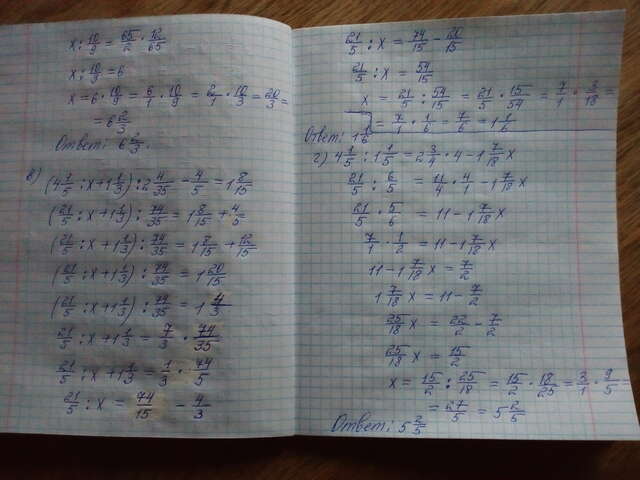 x : 10/9 = 65/2 · 12/65
x : 10/9 = 6
x = 6 · 10/9 = 6/1 · 10/9 = 2/1 · 10/3 = 20/3 =
= 6 2/3
Ответ: 6 2/3.
в) (4 1/5 : x + 1 1/3) : 2 4/35 - 4/5 = 1 8/15
(21/5 : x + 1 1/3) : 74/35 = 1 8/15 + 4/5
(21/5 : x + 1 1/3) : 74/35 = 1 8/15 + 12/15
(21/5 : x + 1 1/3) : 74/35 = 1 20/15
(21/5 : x + 1 1/3) : 74/35 = 1 4/3
21/5 : x + 1 1/3 = 7/3 · 74/35
21/5 : x + 1 1/3 = 1/3 · 74/5
21/5 : x = 74/15 - 4/3
21/5 : x = 74/15 - 20/15
21/5 : x = 54/15
x = 21/5 : 54/15 = 21/5 · 15/54 = 7/1 · 3/18 =
= 7/1 · 1/6 = 7/6 = 1 1/6
Ответ: 1 1/6
г) 4 1/5 : 1 1/5 = 2 3/4 · 4 - 1 7/18 x
21/5 : 6/5 = 11/4 · 4/1 - 1 7/18 x
21/5 · 5/6 = 11 - 1 7/18 x
7/1 · 1/2 = 11 - 1 7/18 x
11 - 1 7/18 x = 7/2
1 7/18 x = 11 - 7/2
25/18 x = 22/2 - 7/2
25/18 x = 15/2
x = 15/2 : 25/18 = 15/2 · 18/25 = 3/1 · 9/5 =
= 27/5 = 5 2/5
Ответ: 5 2/5